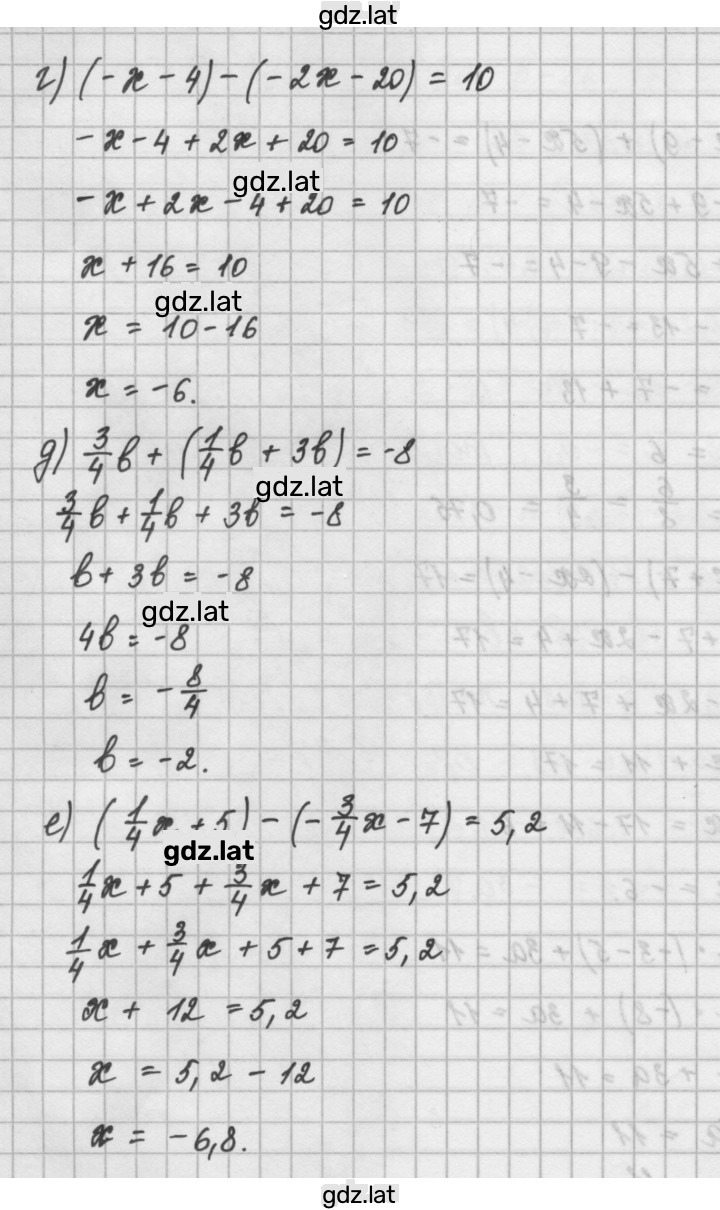 gdz.lat
г) (-x - 4) - (-2x - 20) = 10
-x - 4 + 2x + 20 = 10
gdz.lat
-x + 2x - 4 + 20 = 10
x + 16 = 10
gdz.lat
x = 10 - 16
x = -6.
д) 3/4 в + (1/4 в + 3в) = -8
gdz.lat
3/4 в + 1/4 в + 3в = -8
в + 3в = -8
gdz.lat
4в = -8
в = - 8/4
в = -2.
е) (1/4 x + 5) - (- 3/4 x - 7) = 5,2
gdz.lat
1/4 x + 5 + 3/4 x + 7 = 5,2
1/4 x + 3/4 x + 5 + 7 = 5,2
x + 12 = 5,2
x = 5,2 - 12
x = -6,8.
gdz.lat